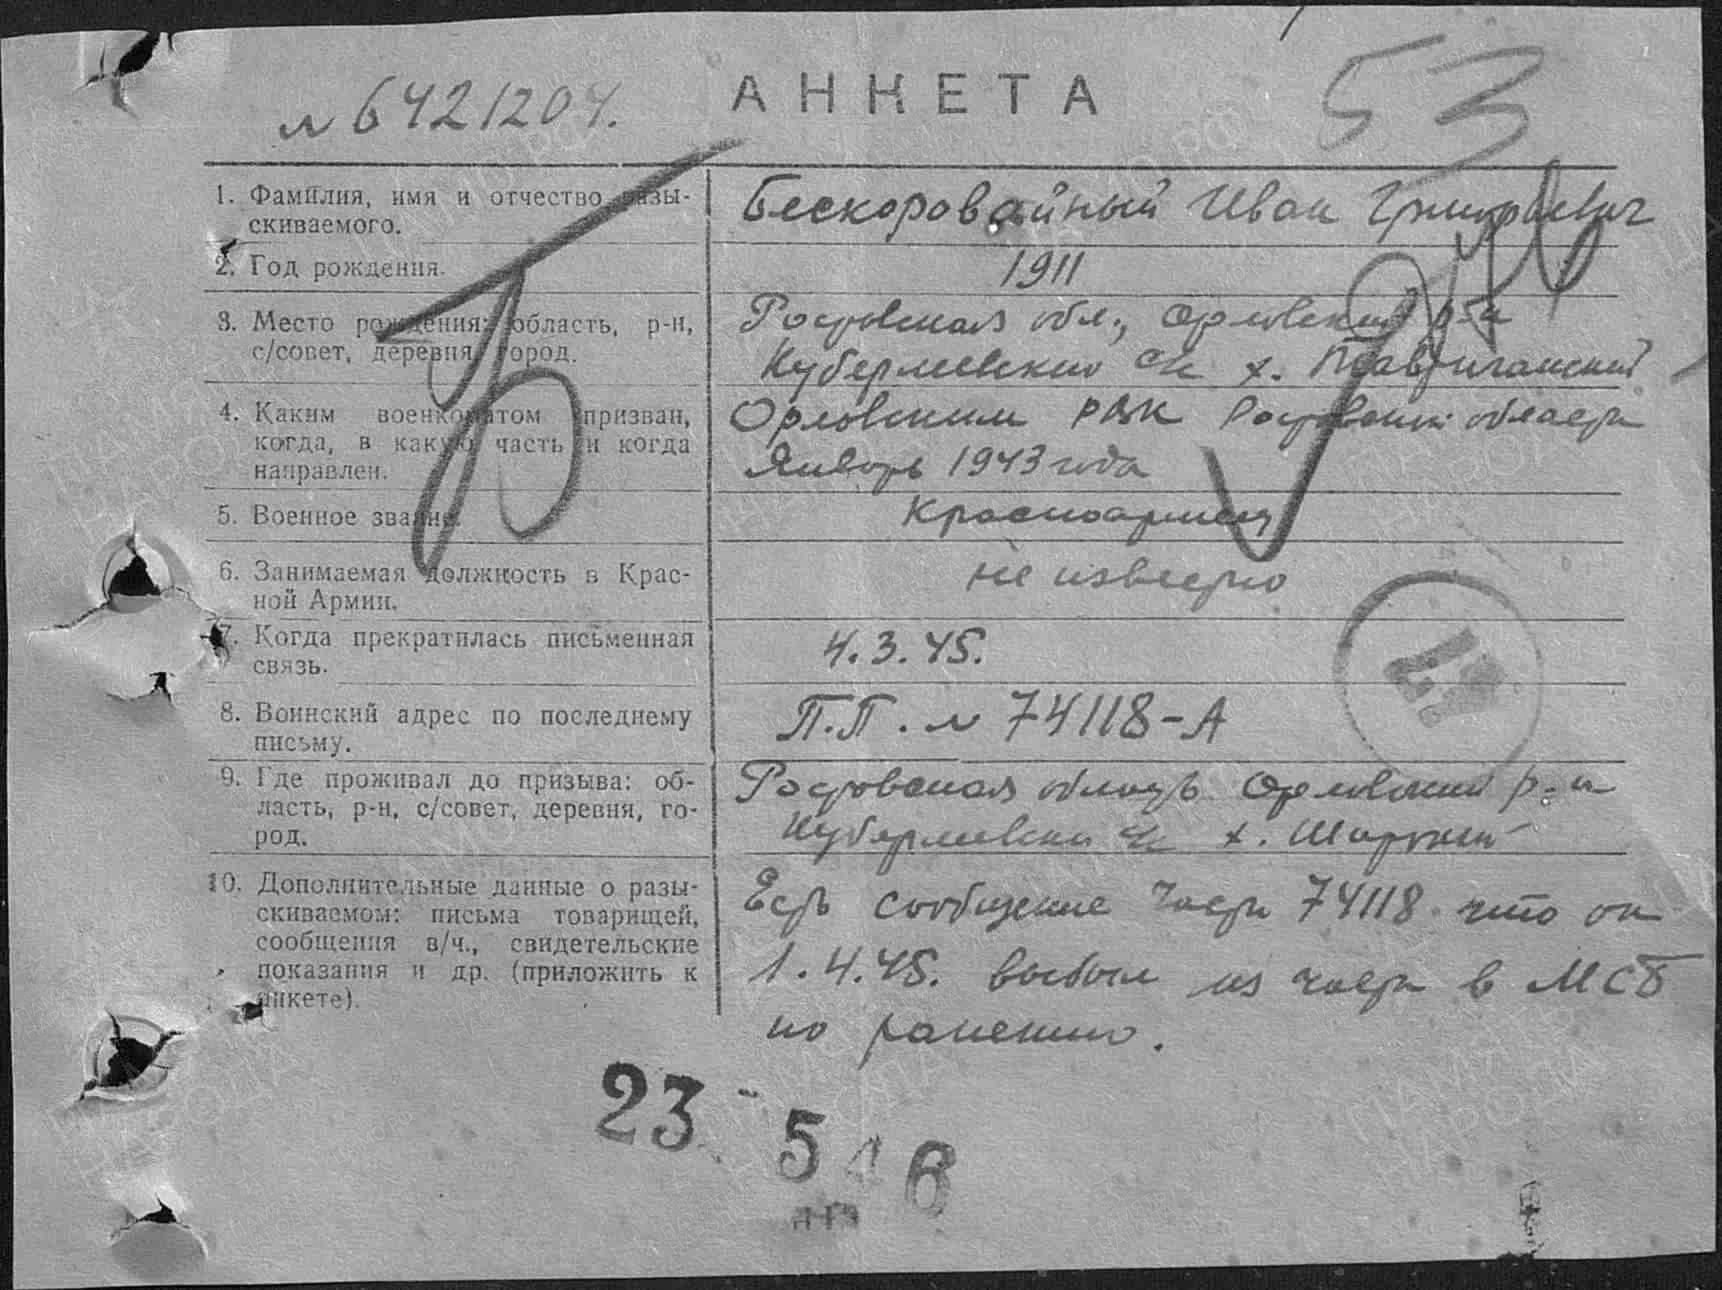 № 6421204. АНКЕТА 53
1. Фамилия, имя и отчество разы-
скиваемого.
Бескоровайный Иван Григорьевич
2. Год рождения.
1911
3. Место рождения: область, р-н,
с/совет, деревня, город.
Ростовская обл., Орловский р-н
Куберлеевский с/с х. Таврический
4. Каким военкоматом призван,
когда, в какую часть и когда
направлен.
Орловским РВК Ростовской области
Январь 1943 года
5. Военное звание.
Красноармеец
6. Занимаемая должность в Крас-
ной Армии.
не известно
7. Когда прекратилась письменная
связь.
4.3.45.
8. Воинский адрес по последнему
письму.
П.П. № 74118-А
9. Где проживал до призыва: об-
ласть, р-н, с/совет, деревня, го-
род.
Ростовская область Орловский р-н
с/с х.
10. Дополнительные данные о разы-
скиваемом: письма товарищей,
сообщения в/ч., свидетельские
показания и др. (приложить к
анкете).
Есть сообщение части 74118 что он
1.4.45. выбыл из части в МСБ
по ранению.
23 5 46